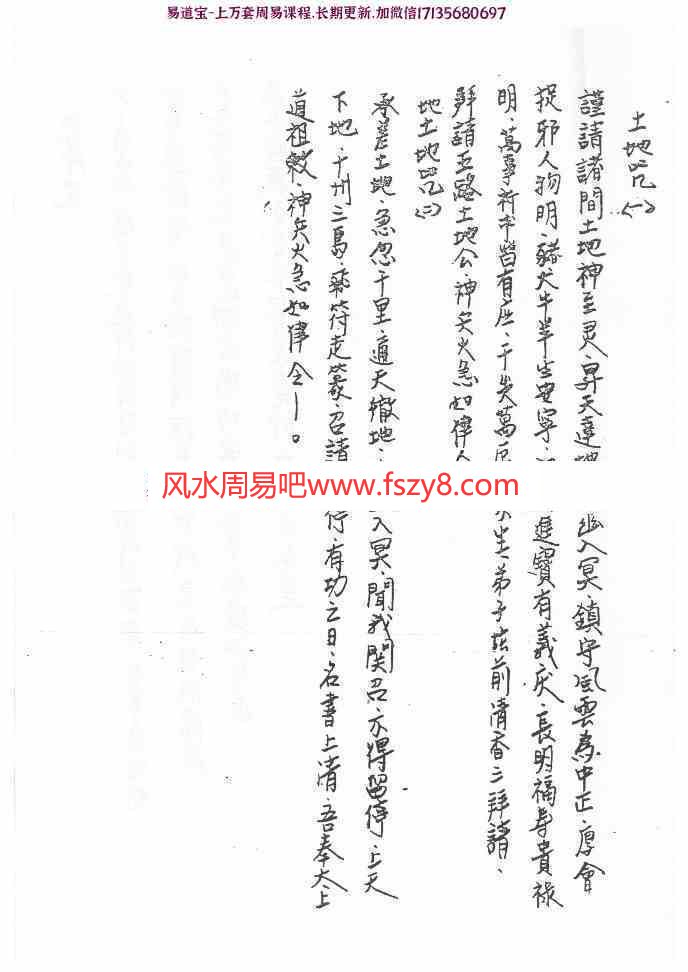 易道宝-上万套周易课程.长期更新.加微信17135680697
土地咒(一)
謹請諸間土地神至灵、昇天達地 幽入冥、鎮守風雲為中正、
捉邪人物明、豬犬牛羊 安寧、 進寶有義庆、長明福寿貴禄
明、萬事祈求皆有 、千 萬 弟子 前清香三拜請、
拜請五路土地公、神兵火急如律令
地土地咒(二)
承差土地、急忽千里、通天徹地、 入冥、聞我関召、 得留停、上天
下地、十州三島、 符走篆、召請 停、有功之日、名書上清、吾奉太上
道祖敕、神兵火急如律令
风水周易吧www.fszy8.com